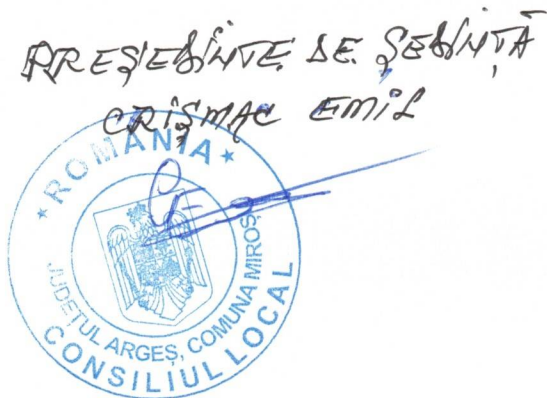 PREȘEDINTE DE ȘEDINȚĂ
CRIȘMAC EMIL
* ROMÂNIA *
JUDEȚUL ARGEȘ, COMUNA MIROȘI
CONSILIUL LOCAL